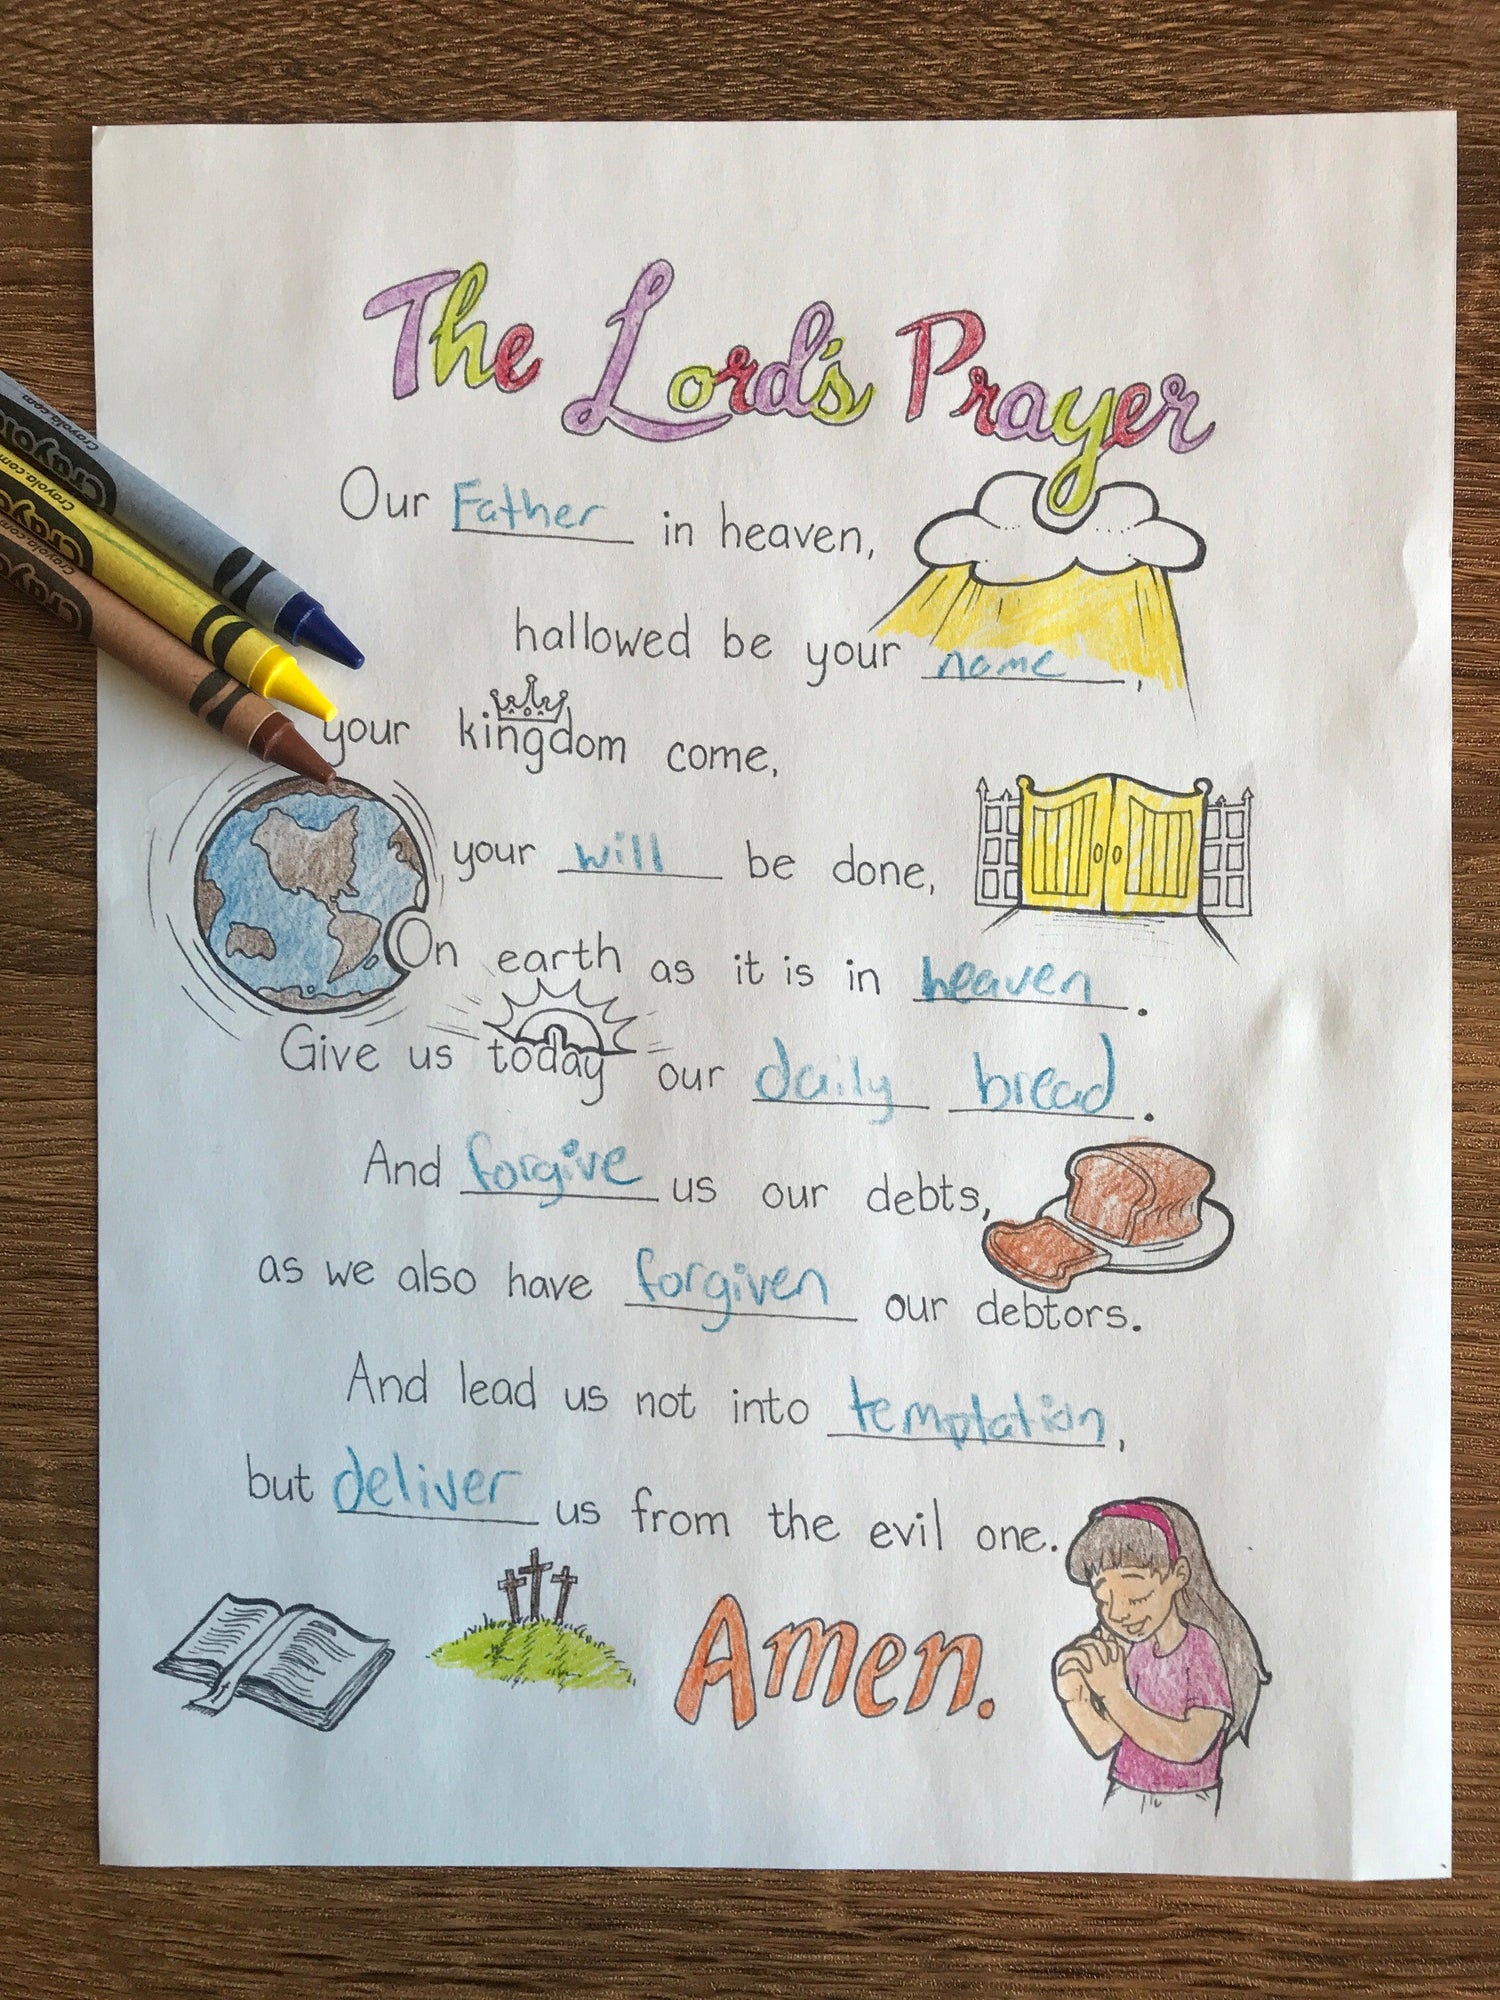 The Lord's Prayer
Our Father in heaven,
hallowed be your name,
your kingdom come,
your will be done,
On earth as it is in heaven.
Give us today our daily bread.
And forgive us our debts,
as we also have forgiven our debtors.
And lead us not into temptation,
but deliver us from the evil one.
Amen.
Crayola.com
Crayola.com
Crayola.com